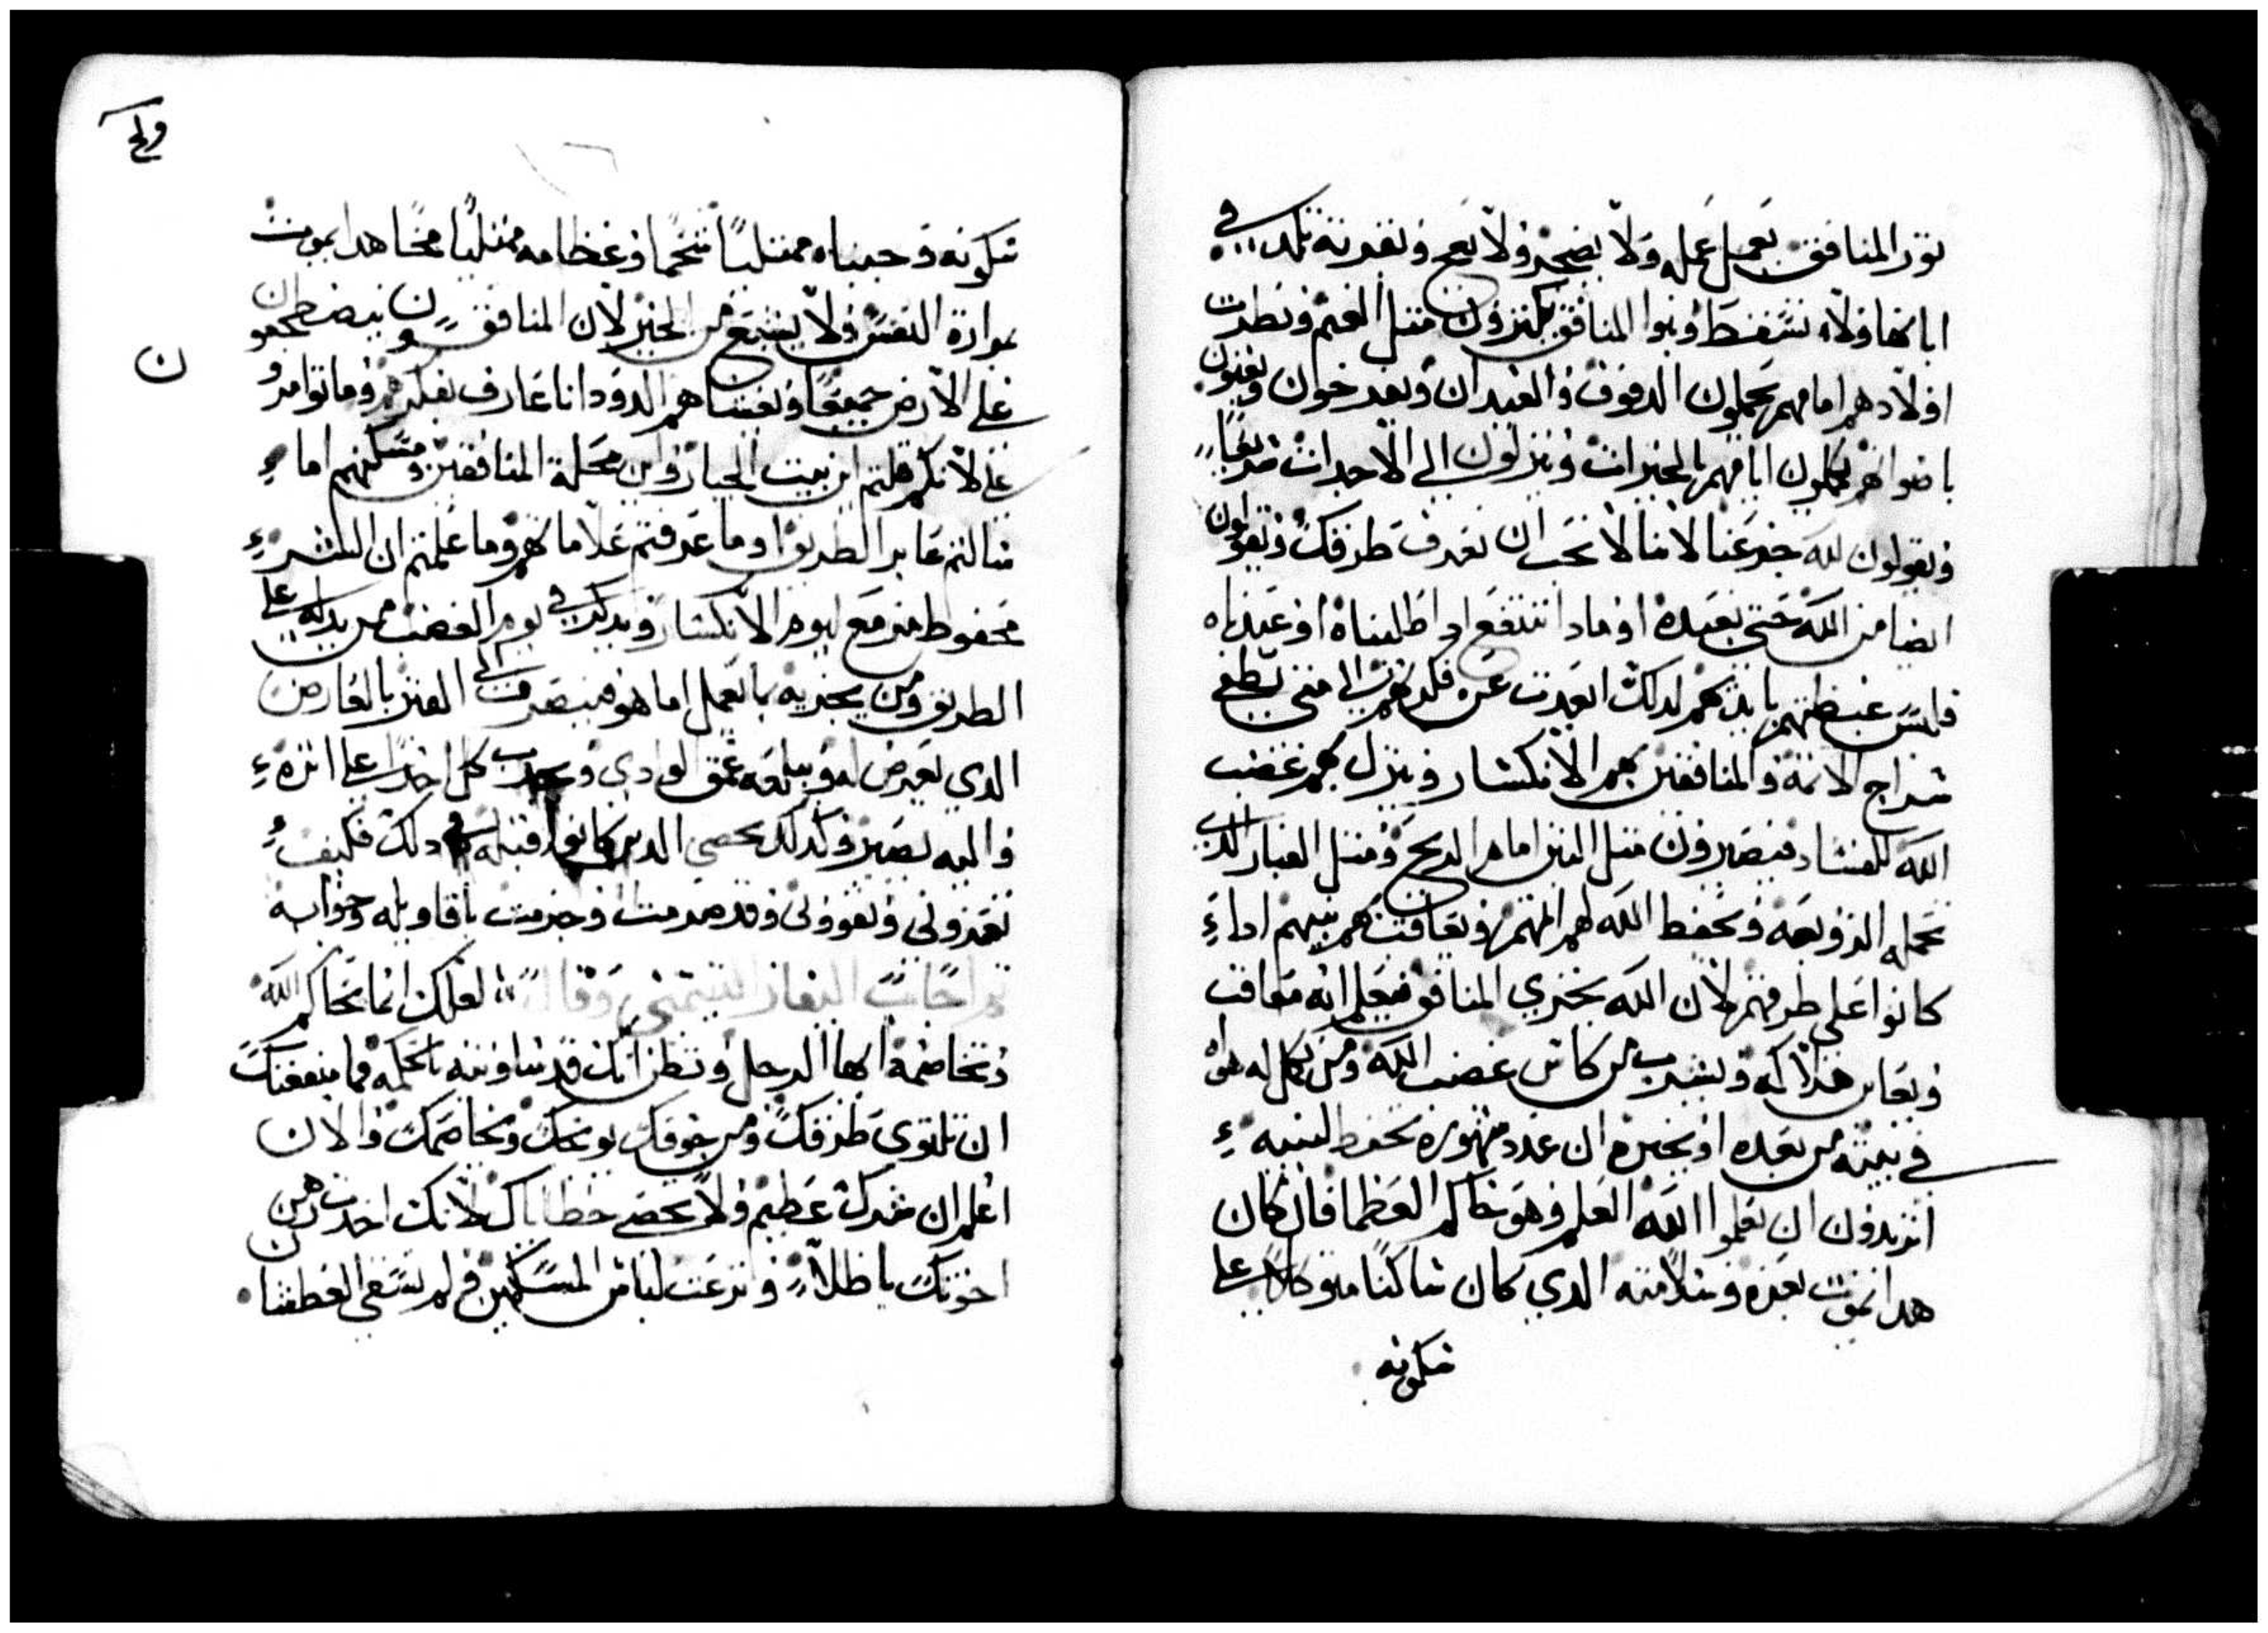 تور المنافق يعمل عمله ولا يضجر ولا يعج وبقرته تلد في
اباكها ولا تسقط وبنوا المنافق يكثرون مثل الغنم ونظرت
اولادهم امامهم يحملون الدفوف والعيدان ويفرحون ويغنون
باصواتهم يكملون ايامهم بالخيرات وينزلون الي الاجداث سريعا
ويقولون لله جز عنا لاننا لا نحب ان نعرف طرقك ويقولون
ايضا من الله حتى نعبده او ماذا ننتفع اذا طلبناه او عبدناه
فليس غبطتهم بايديهم لذلك ابعدت عن فكرتهم الي متى يطفي
سراج الاثمة والمنافقين بهم الانكسار وينزل بهم غضب
الله للفساد فيصيرون مثل التبن امام الريح ومثل الغبار الذي
تحمله الزوبعه ويحفظ الله لهم اثمهم ويعاقب هم بنيهم اذا
كانوا على طرقهم لان الله يجزي المنافق فيعلم انه معاقب
ويعاين هلاكه ويشرب من كاس غضب الله ومن يكل له هواه
في بيته من بعده او يخبره ان عدد شهوره يحفظ لبنيه
اتريدون ان تعلموا الله العلم وهو حاكم العظما فان كان
هدا يموت بعزه وسلامته الدي كان ساكنا متوكلا على
سكونه
سكونه وجنباه ممتليا شحما وعظامه ممتليا مخا هدا يموت
بمرارة النفس ولا يشبع من الخير لان المنافقون يضطجعون
على الارض جميعا ويغشاهم الدود انا عارف بفكرهم وما توامرو
علي لانكم قلتم اين بيت الجبار واين محلة المنافقين ومسكنهم اما
سالتم عابر الطريق او ما عرفتم علاماتهم وما علمتم ان الشر
محفوظ مزمع ليوم الانكسار ويدكر في يوم الغضب من يدله علي
الطريق ومن يجزيه بالعمل اما هو فينصرف الى القبر بالعارض
الدي يعرض له ويبلعه عمق الوادي ويجدب كل احد على اثره
واليه يصير وكدلك يحصي الدين كانوا قبله في دلك فكيف
تعزوني وتقووني وقد صرمت وجزمت باقاويله وجوابه
ثم اجاب اليفاز التيمني وقال لعلك انما تحاكم الله
وتخاصمه ايها الرجل وتظن انك قد ساويته بالحكمه فما ينفعك
ان تلتوي طرقك ومن خوفك يوبخك ويخاصمك والان
اعلم ان شرك عظيم ولا يحصى خطاياك لانك اخدت رهن
اخوتك باطلا ونزعت لباس المسكين ولم تسقي العطشا